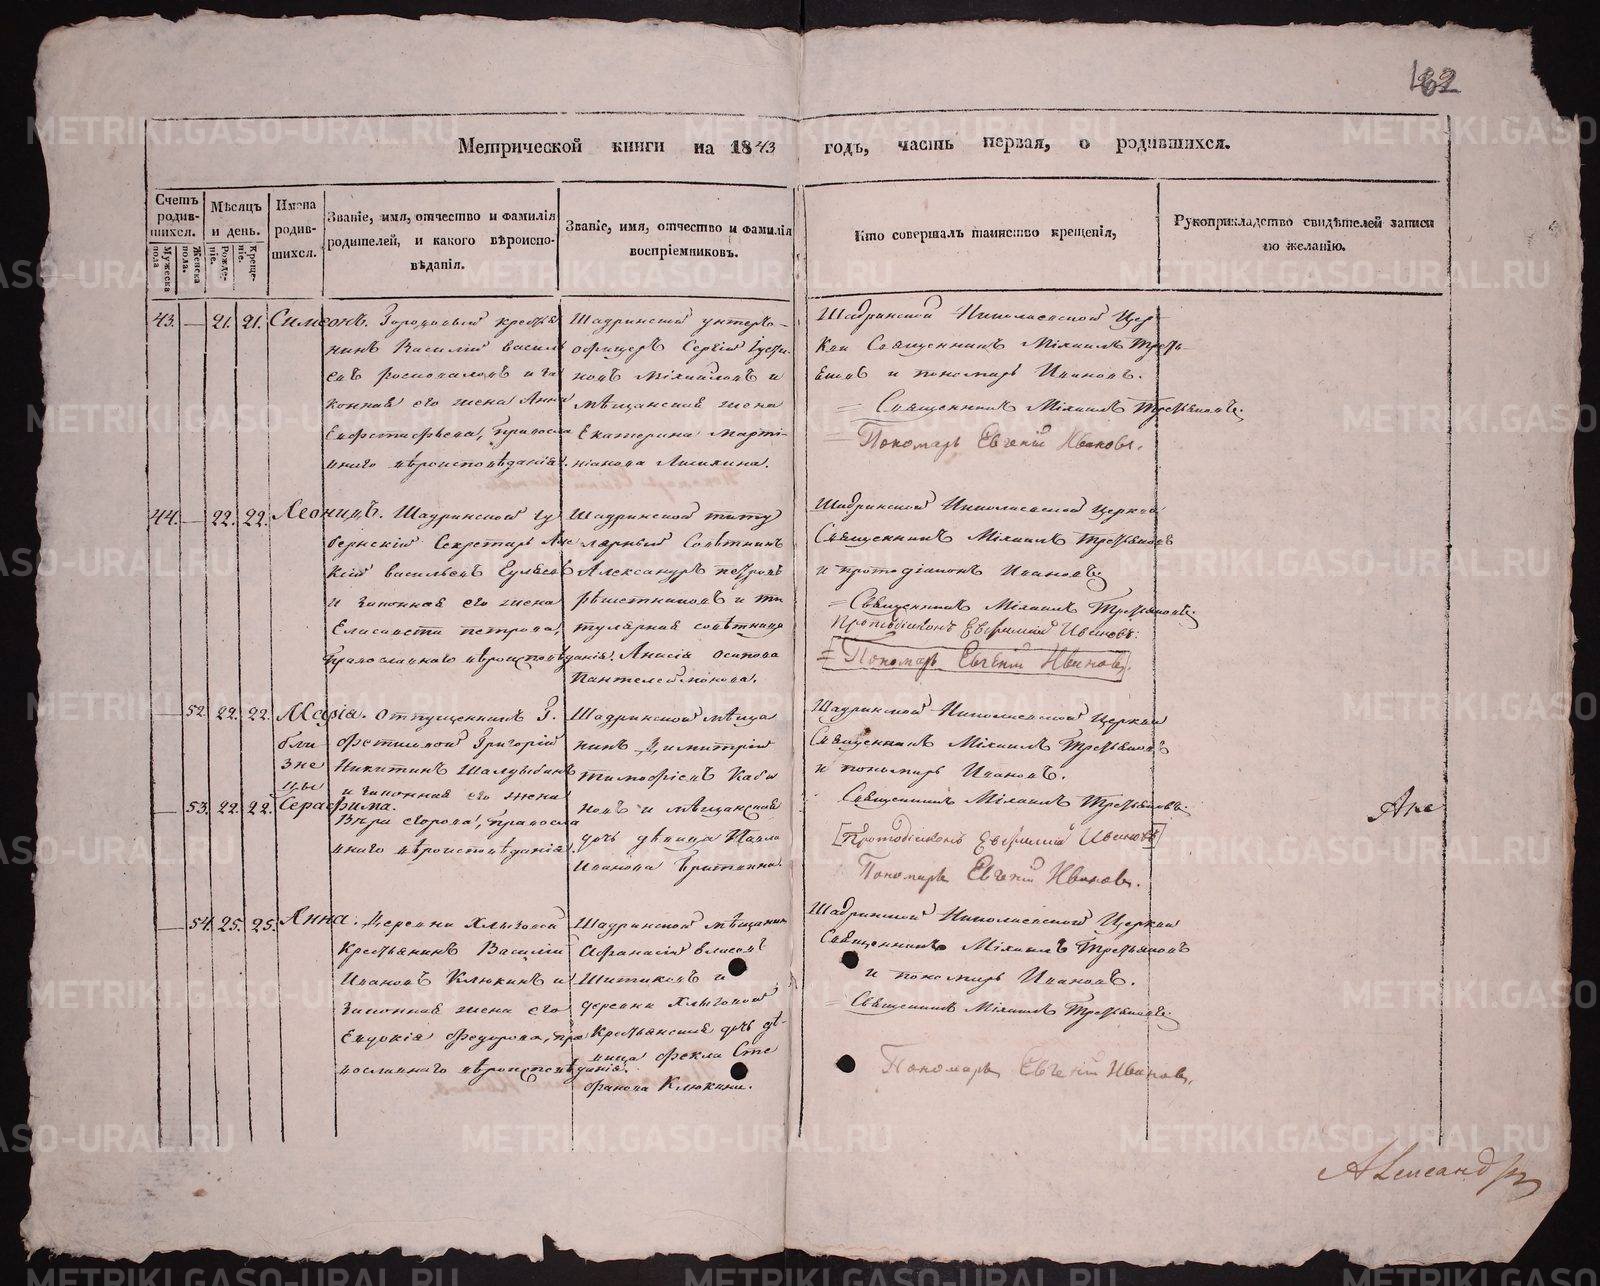 162
Метрической книги на 1843 годъ, часть первая, о родившихся.
Счетъ родив-шихся.
Мужеска пола
Женска пола.
Мѣсяцъ и день.
Рожде-нія.
Креще-нія.
Имена родив-шихся.
Званіе, имя, отчество и фамилія родителей, и какого вѣроиспо-вѣданія.
Званіе, имя, отчество и фамилія воспріемниковъ.
Кто совершалъ таинство крещенія,
Рукоприкладство свидѣтелей записи по желанію.
43. — 21. 21. Симеонъ.
крестья
нинъ Василій Василь
евъ и за
конная его жена Анна
Евфстафьева, правосла
внаго вѣроисповѣданія.
Шадринской унтеръ-
офицеръ Сергій
новъ Михайловъ и
мѣщанская жена
Екатерина Марти-
ніанова
Шадринской Николаевской Цер-
кви Священникъ Михаилъ Третья-
ковъ и пономарь Ивановъ.
= Священникъ Михаилъ Третьяковъ.
= Пономарь Евгеній Ивановъ.
44. — 22. 22. Леонидъ.
Шадринской Гу
бернскій Секретарь Але
ксій Васильевъ
и законная его жена
Елисавета Петрова,
православнаго вѣроисповѣданія.
Шадринской титу
лярный Совѣтникъ
Александръ Петровъ
Рѣшетниковъ и ти
тулярная совѣтница
Анисія Осипова
Пантелеймонова.
Шадринской Николаевской Церкви
Священникъ Михаилъ Третьяковъ
и протодіаконъ Ивановъ.
= Священникъ Михаилъ Третьяковъ.
Протодіаконъ Евфимій Ивановъ.
= Пономарь Евгеній Ивановъ.
— 52. 22. 22. Марія.
бли
зне
цы
— 53. 22. 22. Серафима.
Отпущенникъ Г.
Григорій
Никитинъ
и законная его жена
Вѣра Егорова, правосла
внаго вѣроисповѣданія.
Шадринской мѣща
нинъ Димитрій
Тимофѣевъ Каба
новъ и мѣщанская
дочь дѣвица Павла
Иванова
Шадринской Николаевской Церкви
Священникъ Михаилъ Третьяковъ
и пономарь Ивановъ.
Священникъ Михаилъ Третьяковъ.
[Протодіаконъ Евфимій Ивановъ]
Пономарь Евгеній Ивановъ.
— 54. 25. 25. Анна.
Деревни Хлызовой
Крестьянинъ Василій
Ивановъ Клюкинъ и
законная жена его
Евдокія Федорова, пра
вославнаго вѣроисповѣданія.
Шадринской мѣщанинъ
Афанасій Власовъ
Шитиковъ и
деревни Хлызовой
Крестьянская дочь дѣ-
вица Фекла Сте
фанова Клюкина.
Шадринской Николаевской Церкви
Священникъ Михаилъ Третьяковъ
и пономарь Ивановъ.
= Священникъ Михаилъ Третьяковъ.
Пономарь Евгеній Ивановъ.
Але
Александръ
METRIKI.GASO-URAL.RU